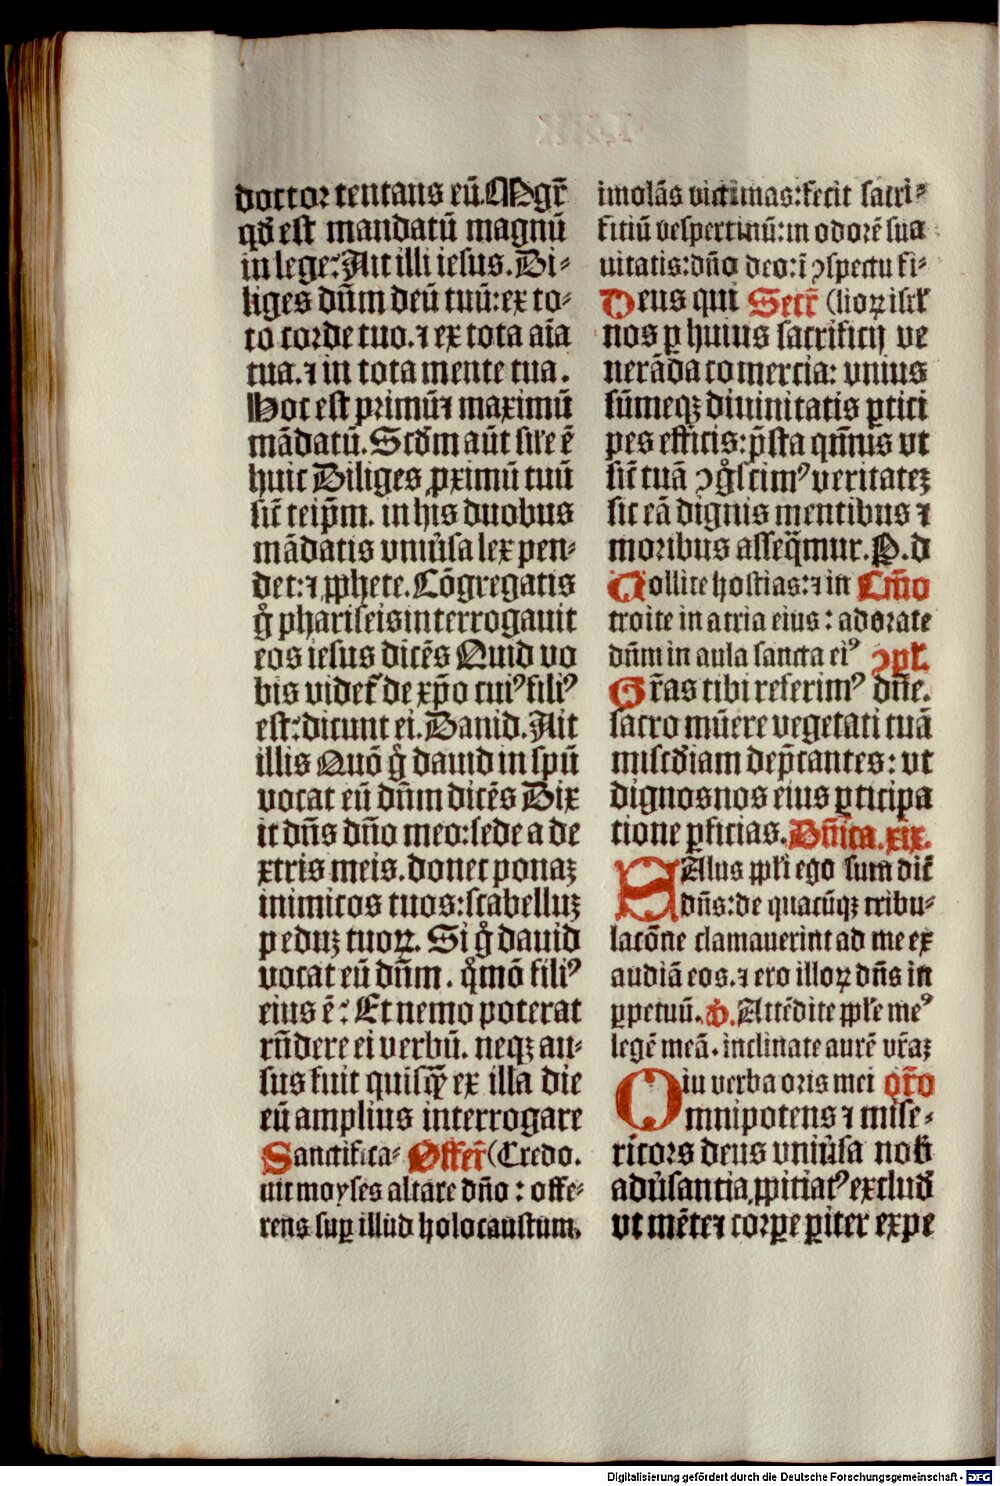 doctor tentans eū. Mgr̄
qd̄ est mandatū magnū
in lege: Ait illi iesus. Di-
liges dn̄m deū tuū: ex to-
to corde tuo. ⁊ ex tota aīa
tua. ⁊ in tota mente tua.
Hoc est primū ⁊ maximū
mādatū. Scd̄m aūt sil̄e ē
huic Diliges ꝓximū tuū
sic̄ teip̄m. in his duobus
mādatis vniūsa lex pen-
det: ⁊ ꝓphete. Cōgregatis
gͦ phariseis interrogauit
eos iesus dicēs Quid vo
bis videt᷑ de xp̄o cuiꝰ filiꝰ
est: dicunt ei. Dauid. Ait
illis Quō gͦ dauid in spū
vocat eū dn̄m dicēs Dix
it dn̄s dn̄o meo: sede a de
xtris meis. donec ponaꝫ
inimicos tuos: scabelluꝫ
peduꝫ tuoꝝ. Si gͦ dauid
vocat eū dn̄m. qͦmō filiꝰ
eius ē: Et nemo poterat
rn̄dere ei verbū. neqꝫ au-
sus fuit quisq̄ ex illa die
eū amplius interrogare
Sanctifica- Offer̄ (Credo.
uit moyses altare dn̄o: offe-
rens suꝑ illud holocaustum.
imolās victimas: fecit sacri-
ficiū vespertinū: in odorē sua
uitatis: dn̄o deo: ī ↄspectu fi-
Deus qui Secr̄ (lioꝝ isrl̄
nos ꝑ huius sacrificij ve
nerāda comercia: vnius
sūmeqꝫ diuinitatis ꝑtici
pes efficis: p̄sta qm̄us vt
sic̄ tuā ↄgͦscimꝰ veritateꝫ
sic eā dignis mentibus ⁊
moribus asseq̄mur. P. d
Tollite hostias: ⁊ in Cōīo
troite in atria eius: adorate
dn̄m in aula sancta eiꝰ ↄpl̄.
Gr̄as tibi referimꝰ dn̄e.
sacro mūere vegetati tuā
miscd̄iam dep̄cantes: vt
dignos nos eius ꝑticipa
tione ꝑficias. Dn̄ica. xix.
SAlus ppl̄i ego sum dic̄
dn̄s: de quacūqꝫ tribu-
lacōne clamauerint ad me ex
audiā eos. ⁊ ero illoꝝ dn̄s in
ꝑpetuū. p̄. Attēdite ppl̄e meꝰ
legē meā. inclinate aurē vr̄aꝫ
Oiu verba oris mei or̄o
mnipotens ⁊ mise-
ric̄ors deus vniūsa nob̄
adūsantia ꝓpitiatꝰ exclud̄
vt mēte ⁊ corꝑe ꝑiter expe
Digitalisierung gefördert durch die Deutsche Forschungsgemeinschaft - DFG